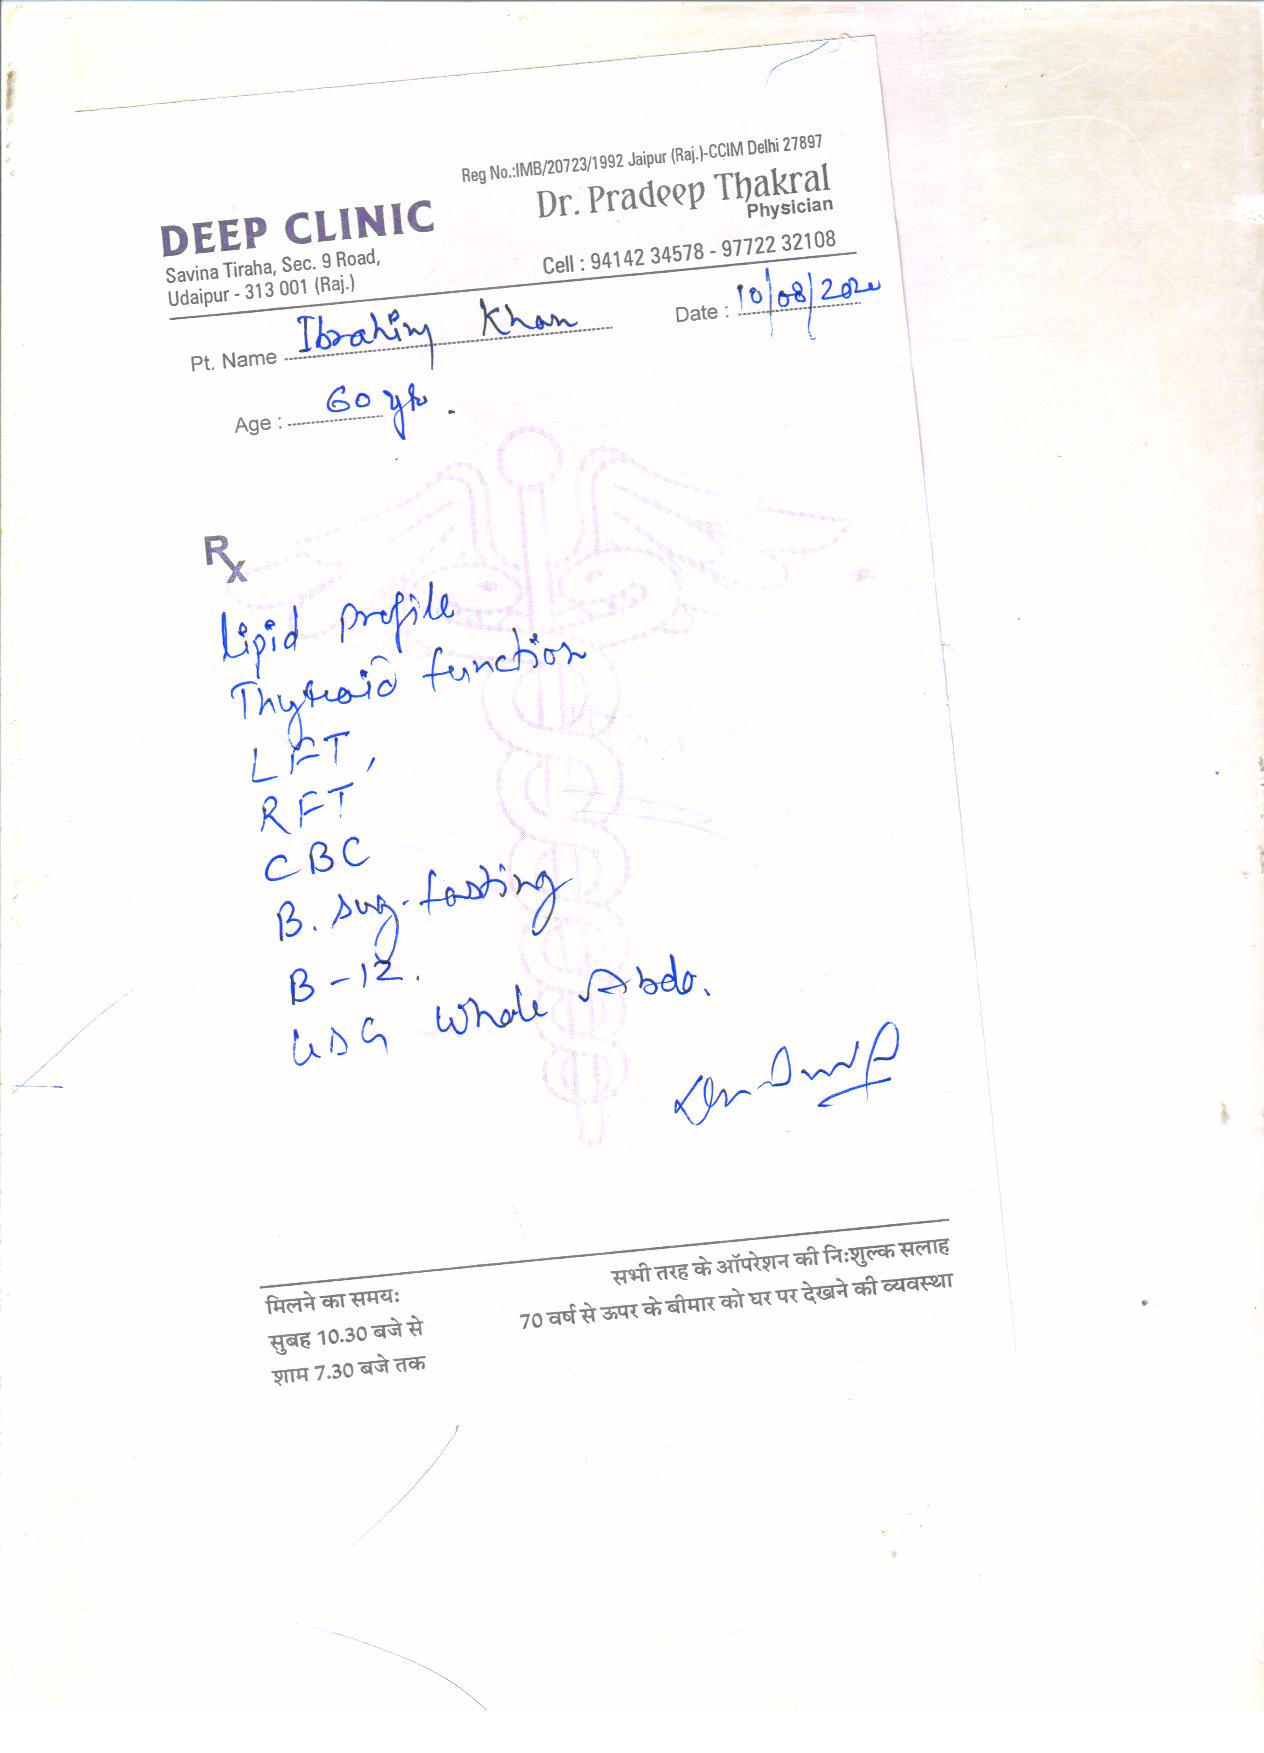 Reg No.:IMB/20723/1992 Jaipur (Raj.)-CCIM Delhi 27897
DEEP CLINIC
Dr. Pradeep Thakral
Physician
Savina Tiraha, Sec. 9 Road,
Udaipur - 313 001 (Raj.)
Cell : 94142 34578 - 97722 32108
Pt. Name Ibrahim Khan
Date : 10/08/2020
Age : 60 yr.
Rx
Lipid profile
Thyroid function
LFT,
RFT
CBC
B. sug. fasting
B-12.
USG Whole Abdo.
सभी तरह के ऑपरेशन की नि:शुल्क सलाह
70 वर्ष से ऊपर के बीमार को घर पर देखने की व्यवस्था
मिलने का समय:
सुबह 10.30 बजे से
शाम 7.30 बजे तक